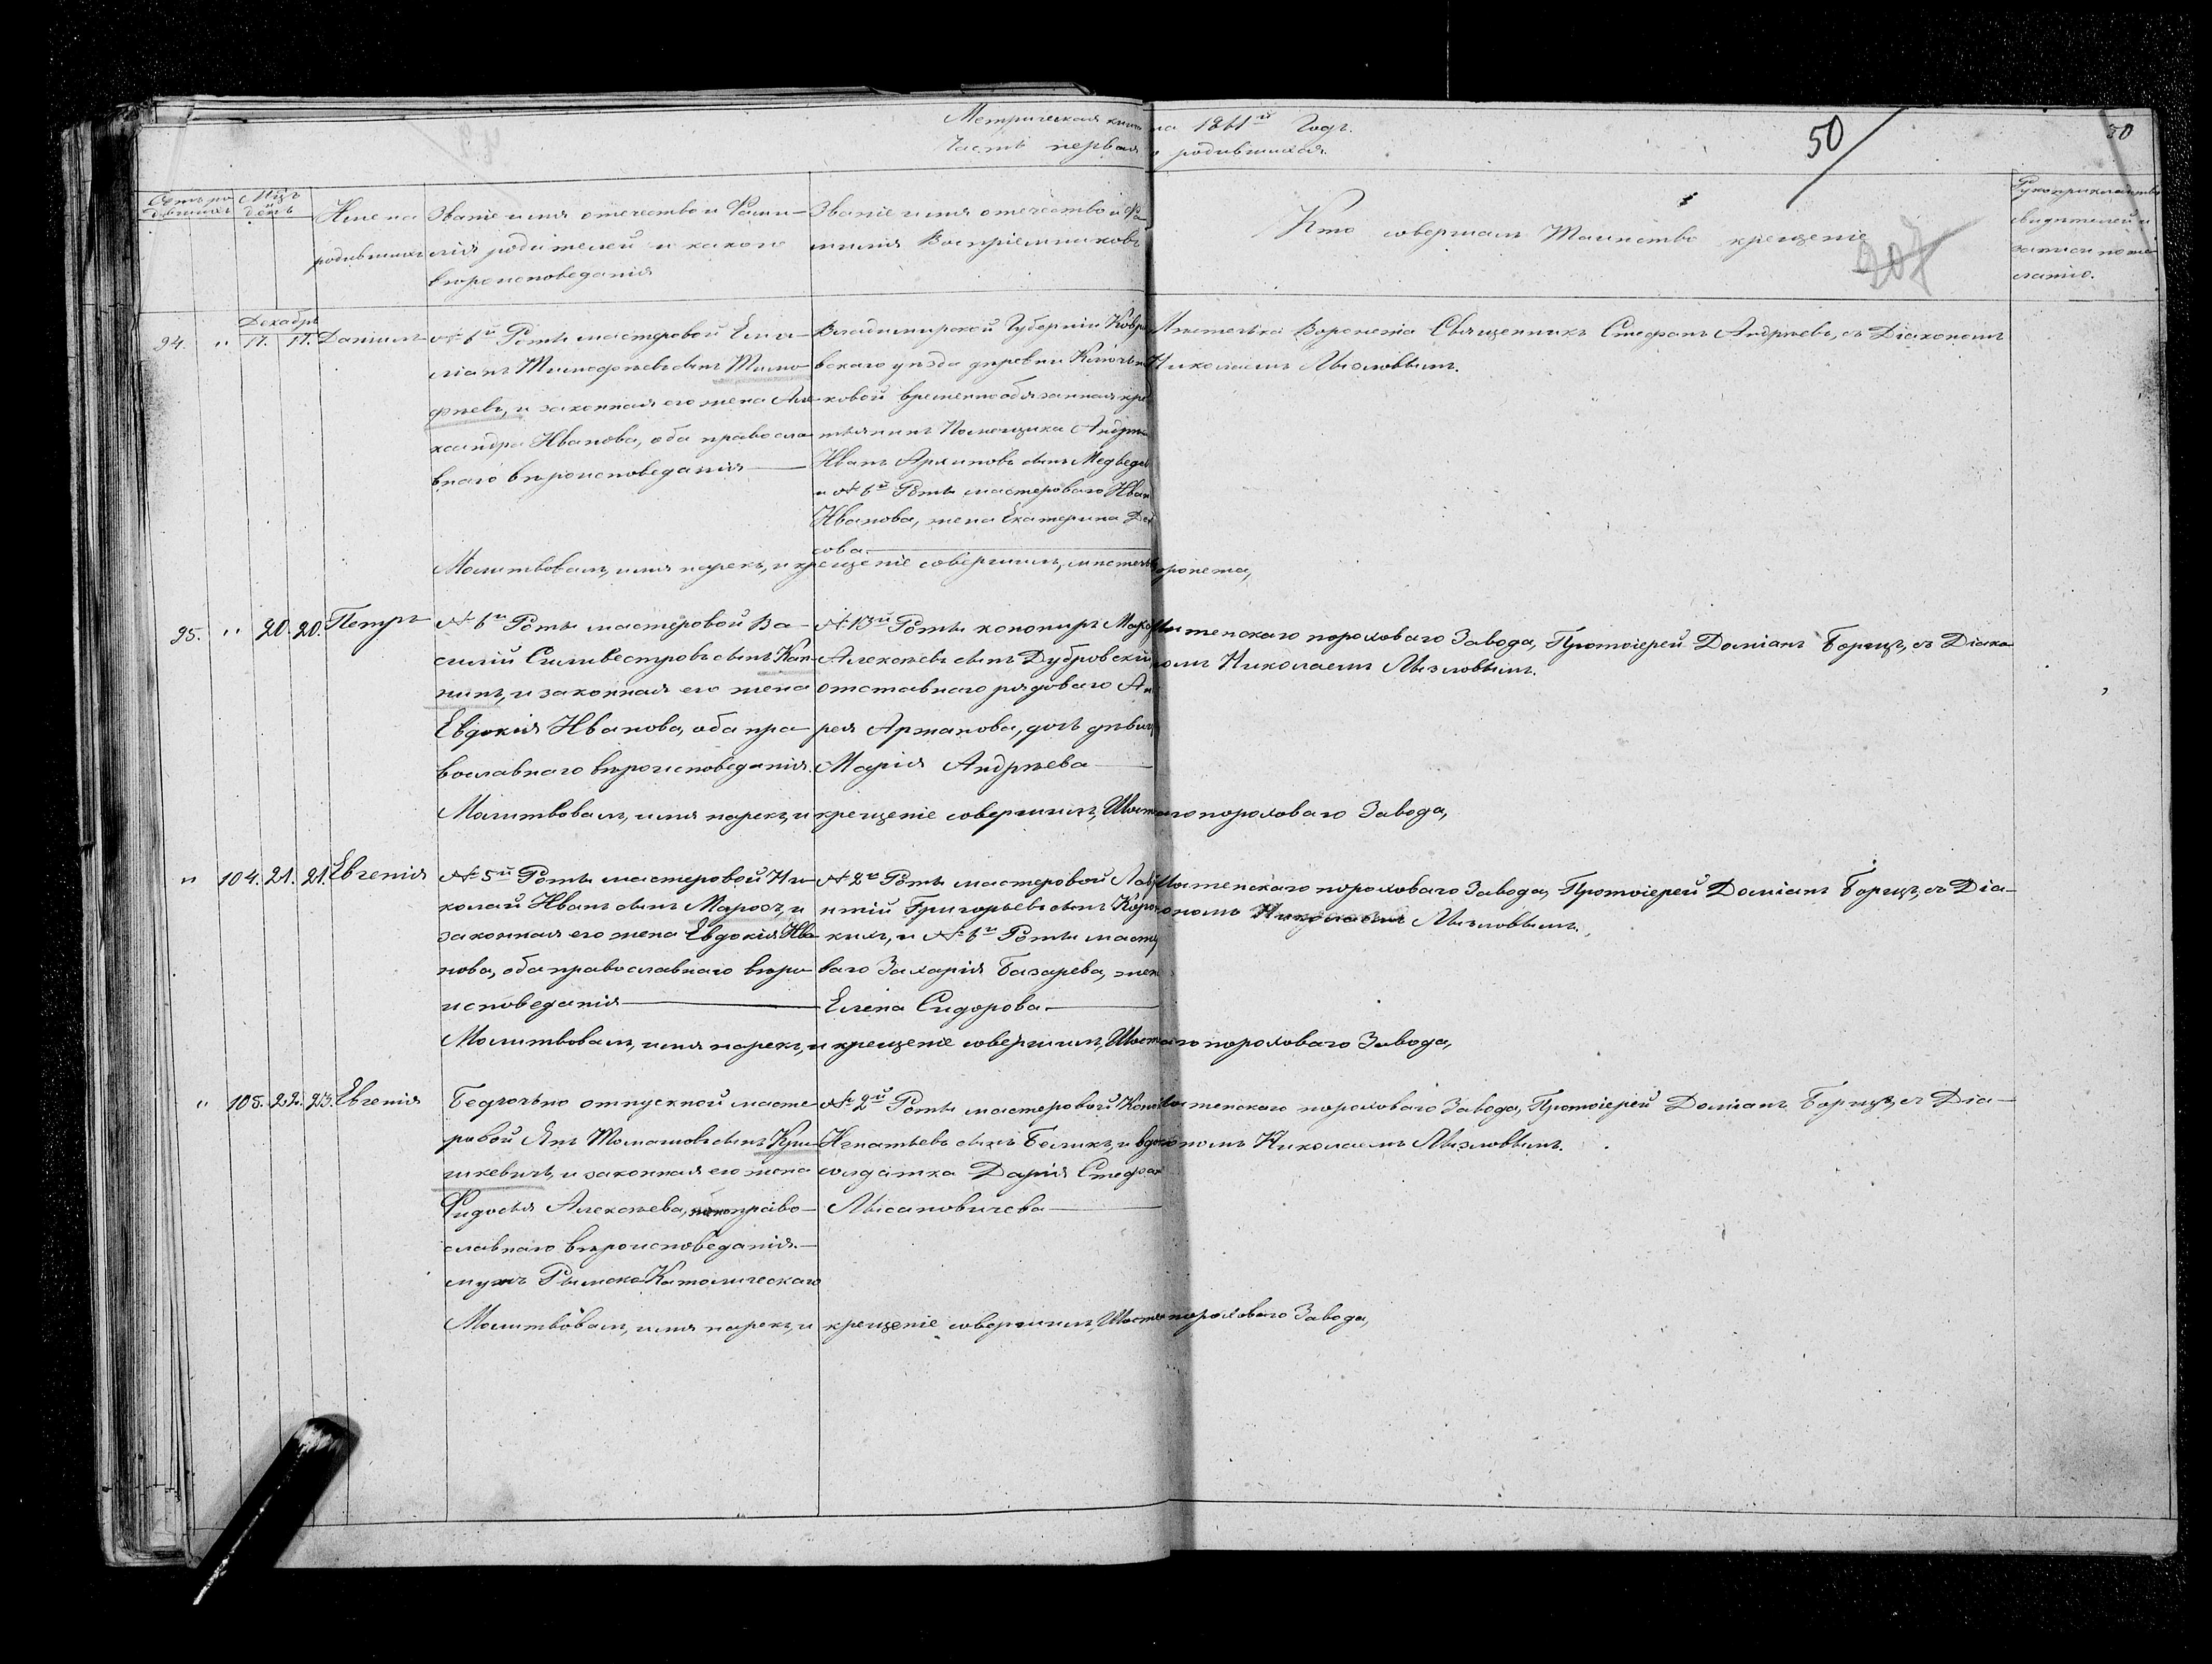 Метрическая книга на 1861й Годъ.
Часть первая о родившихся.
50
50
Счетъ родившихся
Мцъ и день
Имена родившихся
Званіе имя отечество и Фами-
лія родителей и какого
вѣроисповеданія
Званіе имя отечество и Фа-
милія Воспріемниковъ
Кто совершалъ Таинство крещеніе
207
Рукоприкладство
свидѣтелей
записи по же-
ланію.
Декабрь
94. " 17. 17. Даніилъ
№ 6й Роты мастеровой Еми-
ліанъ Тимофѣевъ сынъ Тимо-
фѣевъ, и законная его жена Але-
ксандра Иванова, оба правосла-
внаго вѣроисповеданія
Владимирской Губерніи Ковро-
вскаго уѣзда деревни
ковой временнообязанная кре-
стьянинъ Помещика
Иванъ Архиповъ сынъ Медведев
и № 6й Роты мастероваго Иван
Иванова, жена Екатерина
сова.
Мѣстечка Воронежа Священникъ Стефанъ Андрѣевъ, съ Діакономъ
Николаемъ Лызловымъ.
Молитвовалъ, имя нарекъ, и крещеніе совершилъ, мѣстечка Воронежа,
95. " 20. 20. Петръ
№ 6й Роты мастеровой Ва-
силій Силивестровъ сынъ Кап-
нинъ, и законная его жена
Евдокія Иванова, оба пра-
вославнаго вѣроисповеданія.
№ 13й Роты канониръ
Алексѣевъ сынъ Дубровскій,
отставнаго рядоваго Ан
рея Аржанова, дочь дѣвиц
Марія Андрѣева
Шостенскаго пороховаго Завода, Протоіерей Доміанъ Борщъ, съ Діако-
номъ Николаемъ Лызловымъ.
Молитвовалъ, имя нарекъ, и крещеніе совершилъ, Шостенскаго пороховаго Завода,
" 104. 21. 21. Евгенія
№ 5й Роты мастеровой Ни-
колай Иванъ сынъ Марозъ, и
законная его жена Евдокія Ива-
нова, оба православнаго вѣро-
исповеданія
№ 2й Роты мастеровой Лав
нтій Григорьевъ сынъ Коро
кихъ, и № 6й Роты масте
ваго Захарія Базарева, жен
Елена Сидорова
Шостенскаго пороховаго Завода, Протоіерей Доміанъ Борщъ, съ Діа-
кономъ Николаемъ Лызловымъ.
Молитвовалъ, имя нарекъ, и крещеніе совершилъ, Шостенскаго пороховаго Завода,
" 105. 22. 23. Евгенія
Безрочно отпускной масте-
ровой Янъ Томашовъ сынъ Кри-
шкевичъ, и законная его жена
Фидосья Алексѣева, право-
славнаго вѣроисповѣданія.
мужъ Римско Католическаго
№ 2й Роты мастеровой
Игнатьевъ сынъ Беликъ, и вдо
солдатка Дарія Стефан
Лысановичева
Шостенскаго пороховаго Завода, Протоіерей Доміанъ Борщъ, съ Діа-
кономъ Николаемъ Лызловымъ.
Молитвовалъ, имя нарекъ, и крещеніе совершилъ, Шостен пороховаго Завода,